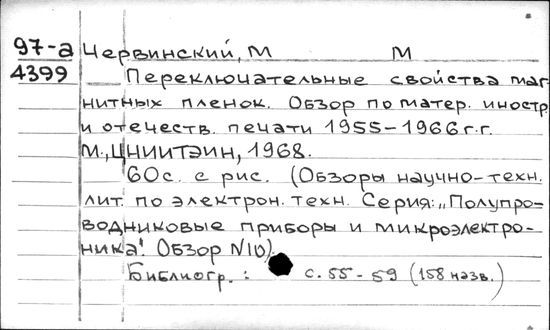 97-а Червинский, М М
4399 Переключательные свойства маг-
нитных пленок. Обзор по матер. иностр.
и отечеств. печати 1955-1966г.г.
М., ЦНИИТЭИН, 1968.
60с. с рис. (Обзоры научно-техн.
лит. по электрон. техн. Серия: „Полупро-
водниковые приборы и микроэлектро-
ника". Обзор N10).
Библиогр.: с. 55-59 (158 назв.)